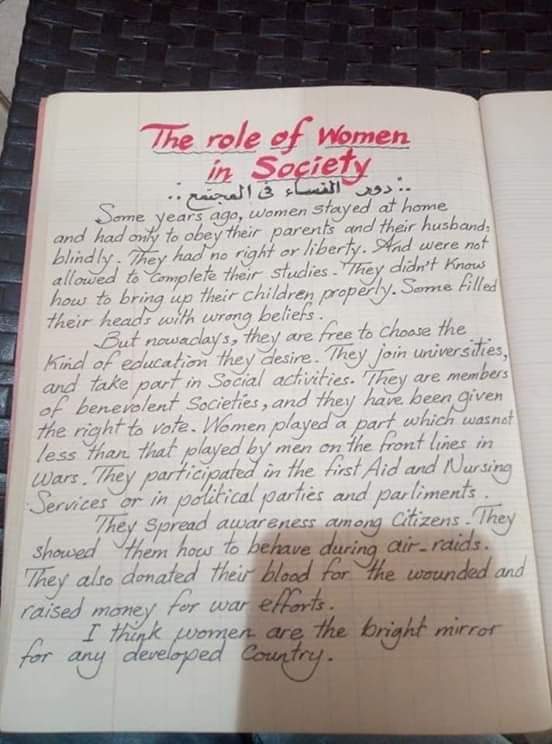 The role of Women
in Society
:. دور النساء في المجتمع .:
Some years ago, women stayed at home
and had only to obey their parents and their husband,
blindly. They had no right or liberty. And were not
allowed to complete their studies. They didn't Know
how to bring up their children properly. Some filled
their heads with wrong beliefs.
But nowadays, they are free to choose the
Kind of education they desire. They join universities,
and take part in Social activities. They are members
of benevolent Societies, and they have been given
the right to vote. Women played a part which was not
less than that played by men on the front lines in
Wars. They participated in the first Aid and Nursing
Services or in political parties and parliments.
They spread awareness among Citizens. They
showed them how to behave during air-raids.
They also donated their blood for the wounded and
raised money for war efforts.
I think women are the bright mirror
for any developed Country.